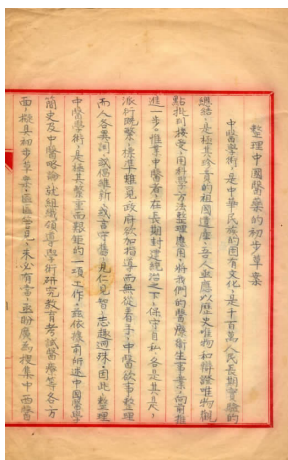 整理中國醫藥的初步草案
中醫學術，是中華民族的固有文化，是千百萬人民長期實驗的
總結，是極其珍貴的祖國遺產，吾人亟應以歷史唯物和辯證唯物觀
點批判接受，用科學方法整理應用，將我們的醫療衛生事業向前推
進一步。惟事中醫者，在長期封建統治之下，保守自私，各是其是，
派衍既繁，標準難見，政府欲加指導而無從着手，中醫欲事整理
而人各異詞，或偏維新，或言守舊，見仁見智，志趣迥殊，因此，整理
中醫學術，是極其繁重而艱鉅的一項工作，茲依據前所述中國醫學
簡史及中醫略論，就組織領導，學術研究，教育考試，醫療等各方
面，擬具初步草案，區區管見，未必有當，亟盼廣為搜集中西醫